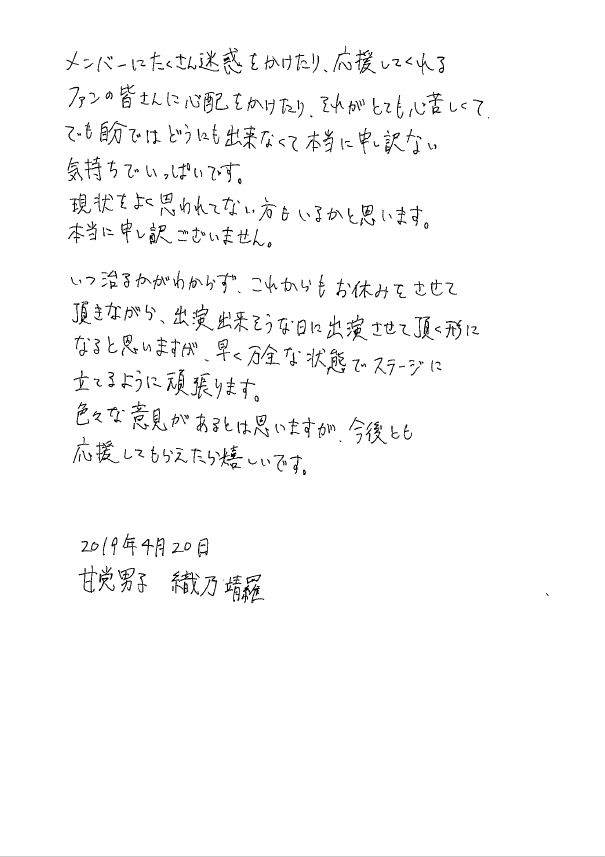 メンバーにたくさん迷惑をかけたり、応援してくれる
ファンの皆さんに心配をかけたり、それがとても心苦しくて、
でも自分ではどうにも出来なくて本当に申し訳ない
気持ちでいっぱいです。
現状をよく思われてない方もいるかと思います。
本当に申し訳ございません。
いつ治るかがわからず、これからもお休みをさせて
頂きながら、出演出来そうな日に出演させて頂く形に
なると思いますが、早く万全な状態でステージに
立てるように頑張ります。
色々な意見があるとは思いますが、今後とも
応援してもらえたら嬉しいです。
2019年4月20日
甘党男子 織乃靖羅